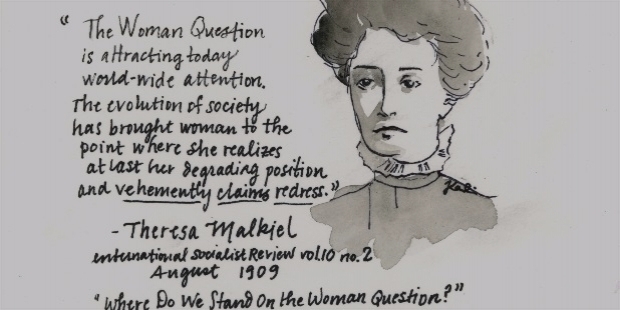 "The Woman Question
is attracting today
world-wide attention.
The evolution of society
has brought woman to the
point where she realizes
at last her degrading position
and vehemently claims redress."
- Theresa Malkiel
international Socialist Review vol.10 no.2
August 1909
"Where Do We Stand On the Woman Question?"